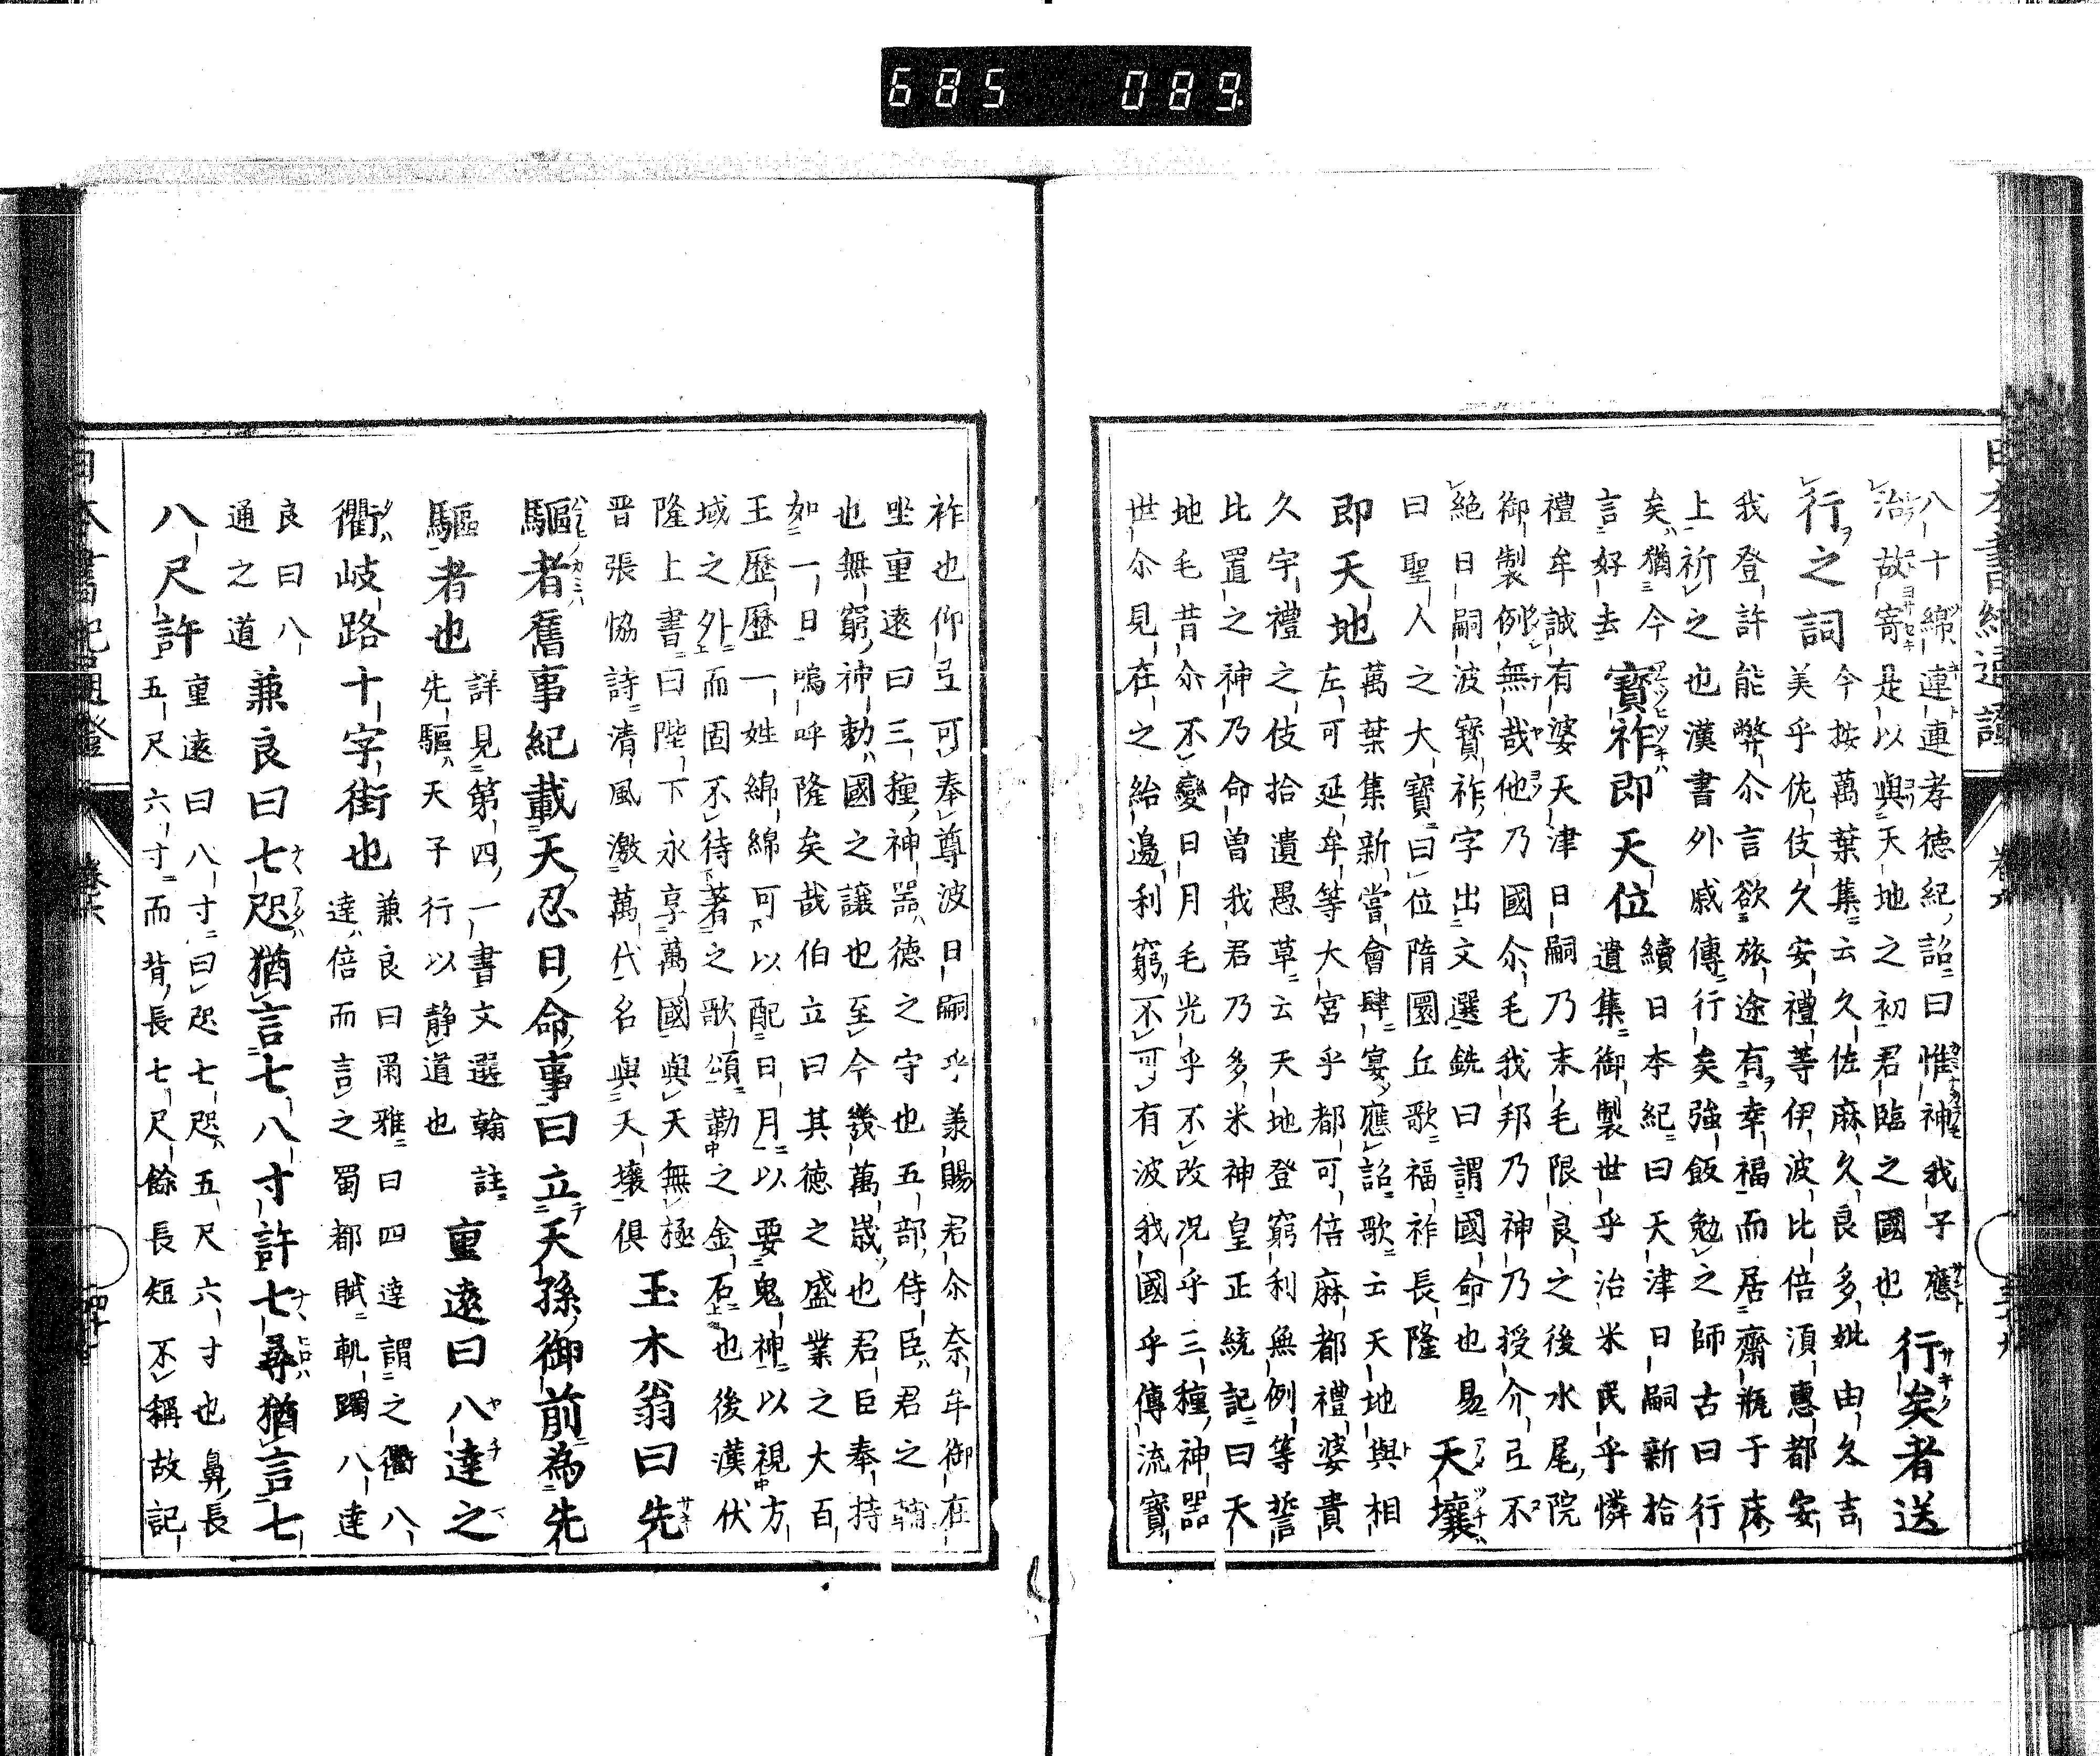 八十綿連連孝徳紀詔曰惟神我子應
治故寄是以與天地之初君臨之國也
行矣者送
行之詞
今按萬葉集云久佐麻久良多妣由久吉
美乎佐伎久安禮等伊波比倍須惠都安
我登許能弊尒言欲旅途有幸福而居齋瓶于床
上祈之也漢書外戚傳行矣強飯勉之師古曰行
矣猶今
言好去
寶祚即天位
續日本紀曰天津日嗣新拾
遺集御製世乎治米民乎憐
禮牟誠有婆天津日嗣乃末毛限良之後水尾院
御製例無哉他乃國尒毛我邦乃神乃授介弖不
絶日嗣波寶祚字出文選銑曰謂國命也易
曰聖人之大寶曰位隋圜丘歌福祚長隆
天壤
即天地
萬葉集新嘗會肆宴應詔歌云天地與相
左可延牟等大宮乎都可倍麻都禮婆貴
久宇禮之伎拾遺愚草云天地登窮利無例等誓
比置之神乃命曽我君乃多米神皇正統記曰天
地毛昔尒不變日月毛光乎不改况乎三種神器
世尒見在之紿邊利窮不可有波我國乎傳流寶
祚也仰弖可奉尊波日嗣乎兼賜君尒奈牟御在
坐重遠曰三種神器德之守也五部侍臣君之輔
也無窮神勅國之讓也至今幾萬歳也君臣奉持
如一日嗚呼隆矣哉伯立曰其徳之盛業之大百
王歷歷一姓綿綿可以配日月以要鬼神以視方
域之外而固不待著之歌頌勤之金石也後漢伏
隆上書曰陛下永享萬國與天無極
晋張恊詩清風激萬代名與天壤俱
玉木翁曰先
驅者舊事紀載天忍日命事曰立天孫御前為先
驅者也
詳見第四一書文選翰註
先驅天子行以静道也
重遠曰八達之
衢岐路十字街也
兼良曰爾雅曰四達謂之衢八
達倍而言之蜀都賦軌躅八達
良曰八
通之道
兼良曰七咫猶言七八寸許七尋猶言七
八尺許
重遠曰八寸曰咫七咫五尺六寸也鼻長
五尺六寸而背長七尺餘長短不稱故記
685 089